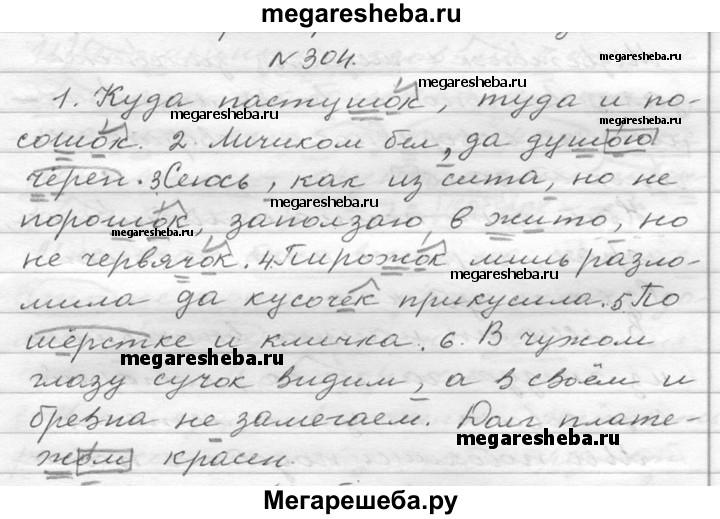 megaresheba.ru
N 304.
megaresheba.ru
megaresheba.ru
1. Куда пастушок, туда и по-
megaresheba.ru
сошок. 2. Личиком бел, да душою
megaresheba.ru
череп. 3 Сеюсь, как из сита, но не
порошок, заползаю в жито, но
megaresheba.ru
не червячок. 4 Пирожок лишь разло-
megaresheba.ru
мила да кусочек прикусила. 5 По
шёрстке и кличка. 6. В чужом
megaresheba.ru
глазу сучок видим, а в своём и
бревна не замечаем. Долг плате-
megaresheba.ru
жом красен.
Мегарешеба.ру